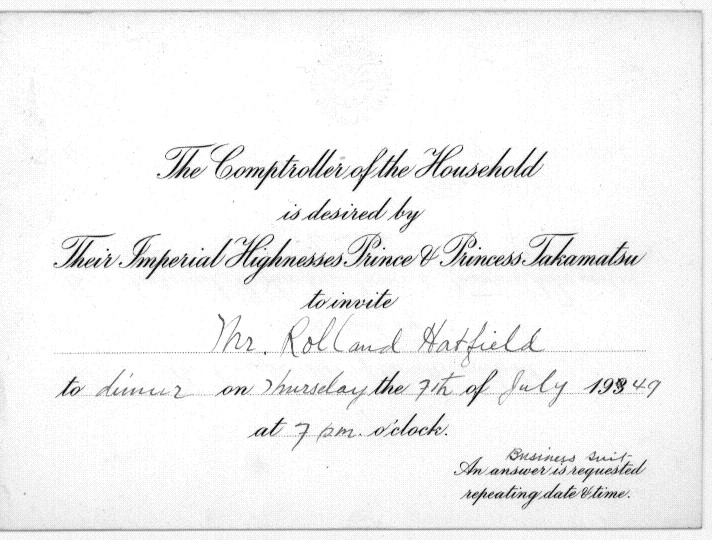 The Comptroller of the Household
is desired by
Their Imperial Highnesses Prince & Princess Takamatsu
to invite
Mr. Rolland Hatfield
to dinner on Thursday the 7th of July 1949
at 7 pm. o'clock.
Business suit
An answer is requested
repeating date & time.